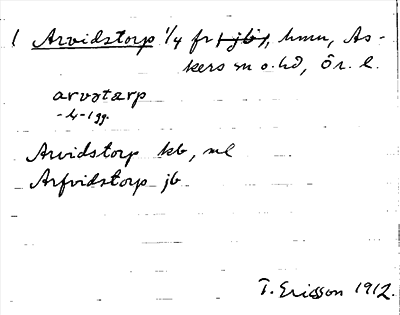 1 Arvidstorp 1/4 fr, hmn, As-
kers sn o. hd, Ör. l.
arvstarp
-4-1 gg.
Arvidstorp kb, ml
Arfvidstorp jb
T. Ericsson 1912.